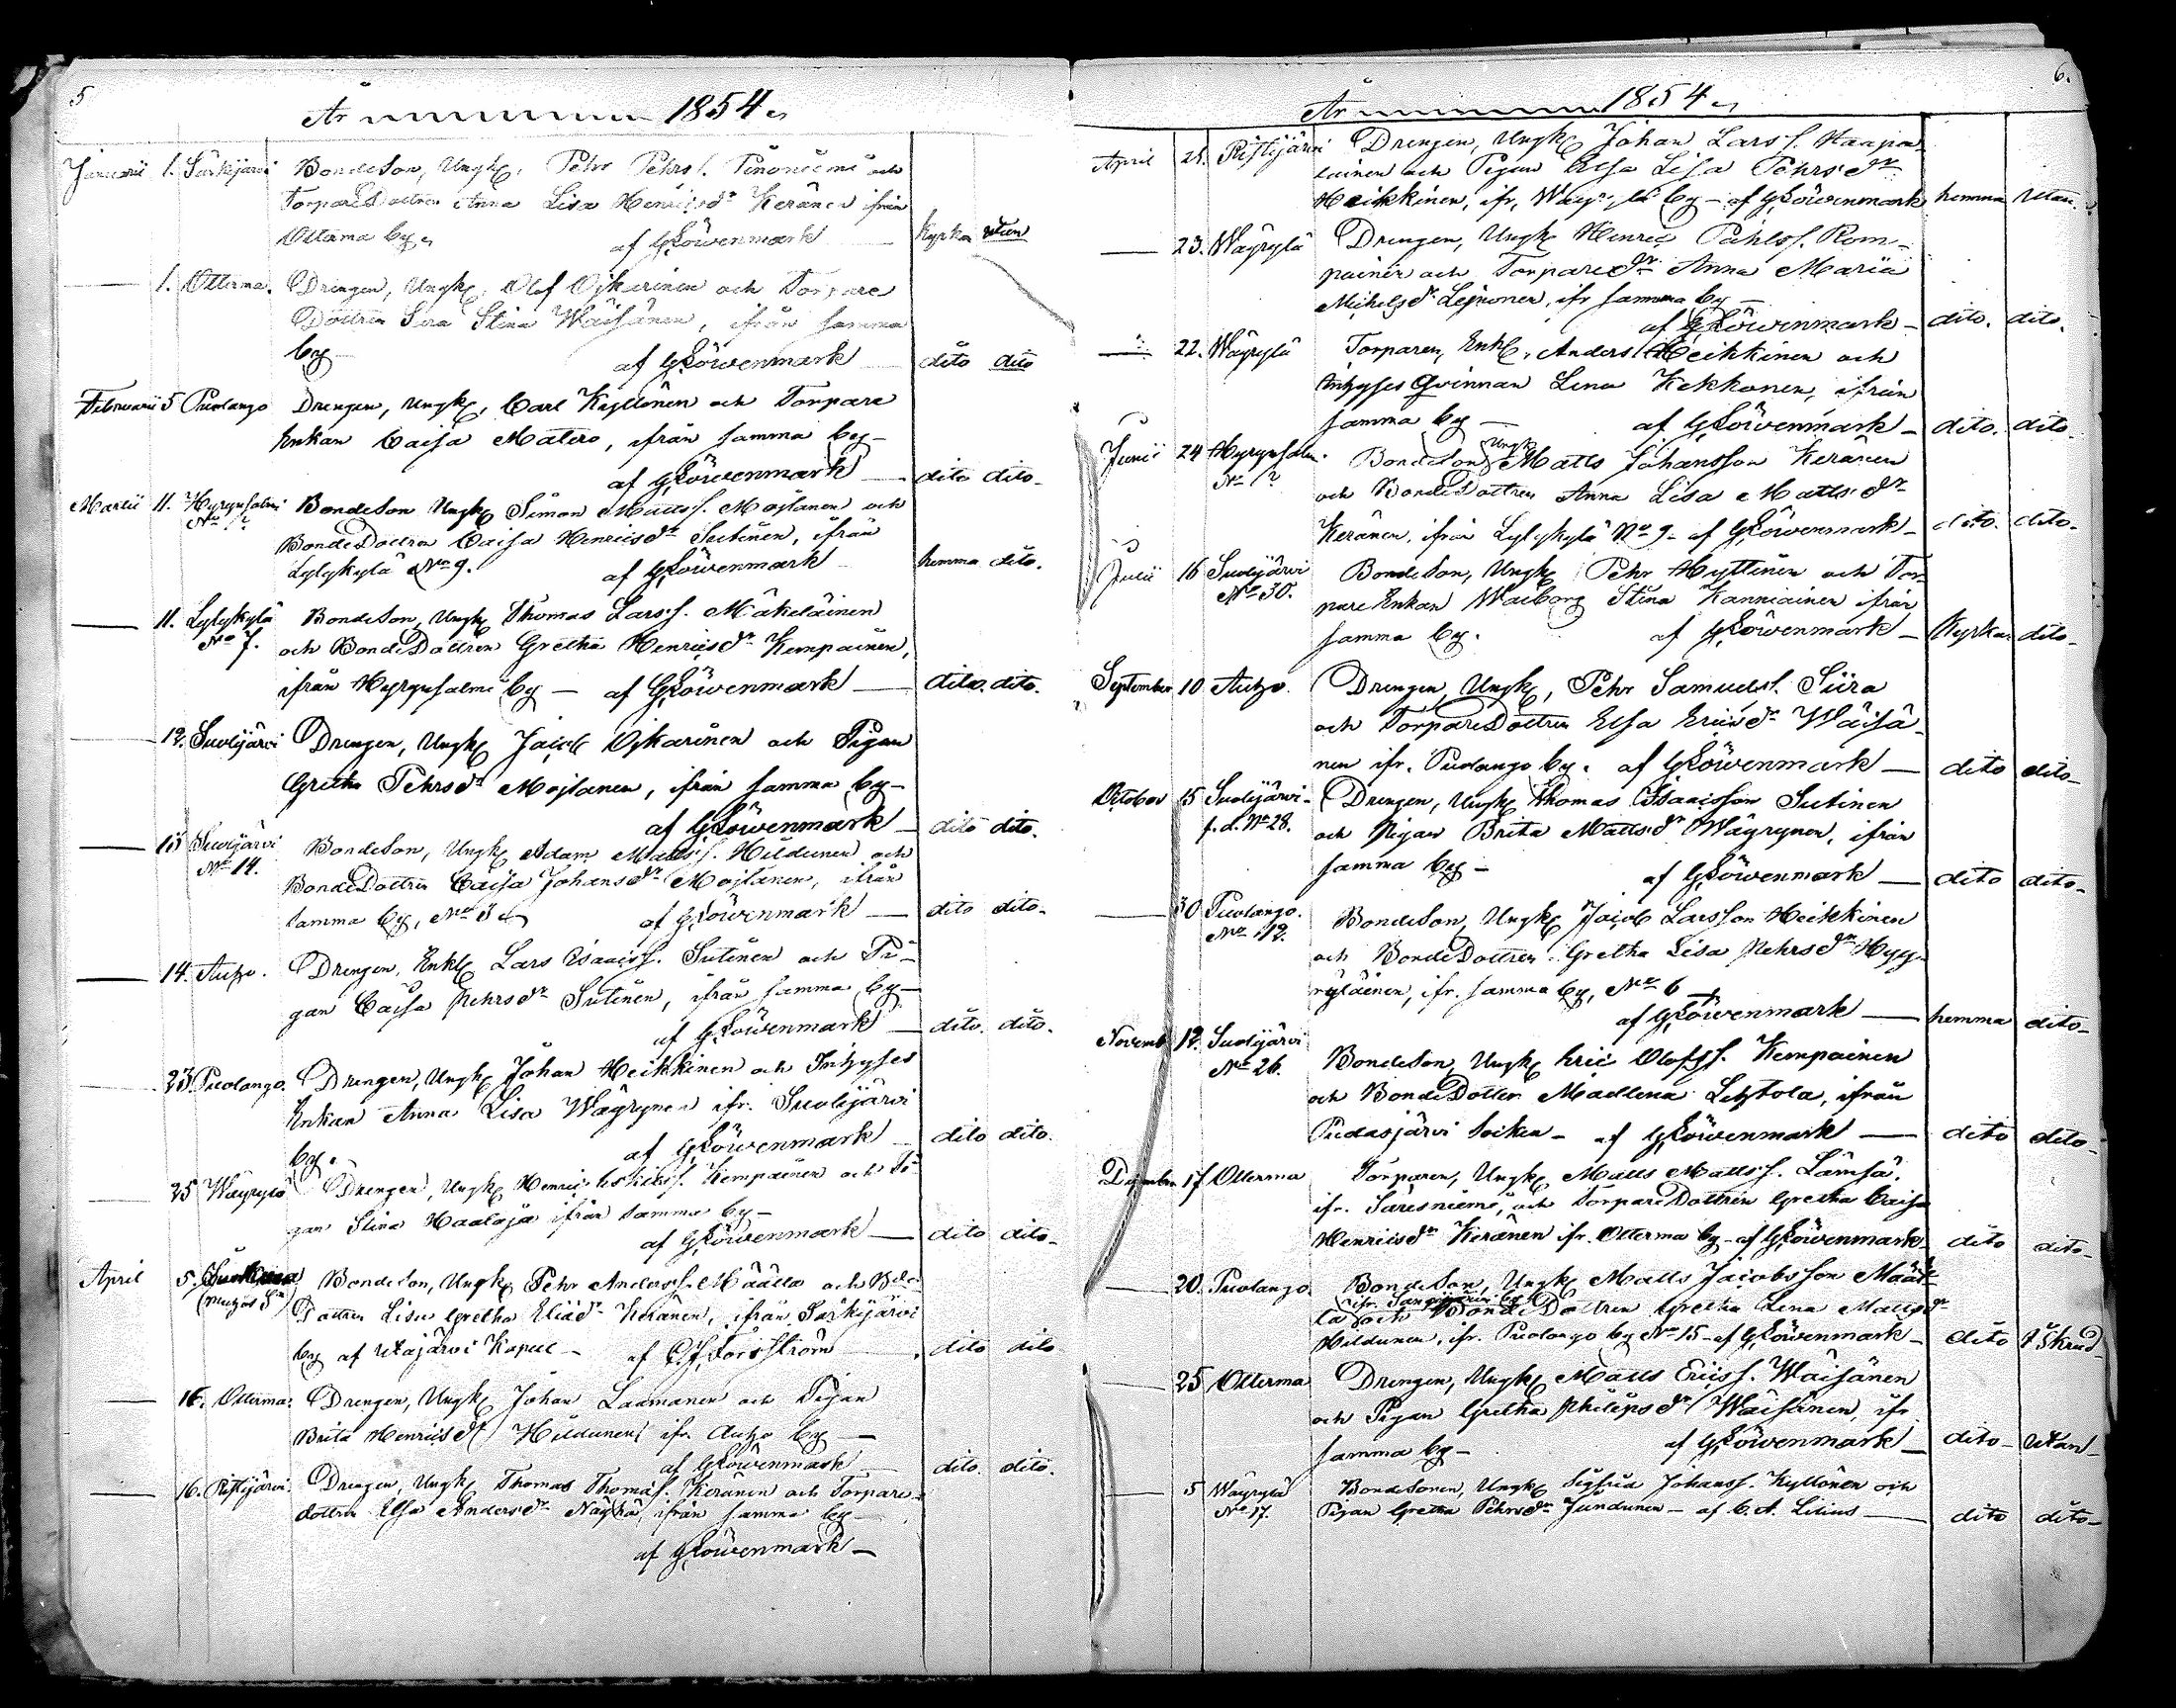 5
År 1854
Januarii 1. Särkijärvi Bondeson, Ungk, Pehr Pehrs s. Pinoniemi och
TorpareDottren Anna Lisa Henricsdr Keränen ifrån
Otterma by, af G Löwenmark — kyrkan utan
— 1. Otterma. Drengen, Ungk, Olof Ojkarinen och Torpare
Dottren Sera Stina Wäisänen, ifrån samma
by af G Löwenmark — dito dito
Februarii 5 Puolango Drengen, Ungk, Carl Kyllönen och Torpare
Enkan Caisa Matero, ifrån samma by —
af G Löwenmark — dito dito
Martii 11. Hyrynsalmi Bondeson Ungk Simon Matts s. Mojlanen och
No BondeDottren Caisa Henricsdr Sutinen, ifrån
Lylykylä No 9. af G Löwenmark hemma dito.
— 11. Lylykylä Bondeson, Ungk Thomas Lars s. Mäkeläinen
No 7. och BondeDottren Gretha Henricsdr Kempainen,
ifrån Hyrynsalmi by — af G Löwenmark — dito. dito.
— 12. Suolijärvi Drengen, Ungk Jacob Ojkarinen och Pigan
Gretha Pehrsdr Mojlanen, ifrån samma by —
af G Löwenmark — dito dito.
— 15 Suolijärvi Bondeson, Ungk Adam Matts s. Hildunen och
No 14. BondeDottren Caisa Johansdr Mojlanen, ifrån
samma by, No 3 af G Löwenmark — dito dito.
— 14. Autzo. Drengen, Enkl Lars Isaacs s. Sutinen och Pi-
gan Caisa Pehrsdr Sutinen, ifrån samma by —
af G Löwenmark — dito. dito.
— 23. Puolango. Drengen, Ungk Johan Heikkinen och Inhyses
Enkan Anna Lisa Wäyrynen ifr. Suolijärvi
by. af G Löwenmark — dito dito.
— 25 Wäyrylä Drengen, Ungk Henric Eskils s. Kempainen och Pi-
gan Stina Haataja ifrån samma by —
af G Löwenmark — dito dito
April 5. Bondeson, Ungk Pehr Anders s. Määttä och Bde-
Dottren Lisa Gretha Eliædr Keränen, ifrån Särkijärvi
by af Utajärvi Kapell — af Forsström dito dito
— 16. Otterma. Drengen, Ungk Johan Laamanen och Pigan
Brita Henricsdr Hildunen ifr. Autzo by —
af G Löwenmark dito. dito.
— 16. Ristijärvi. Drengen, Ungk Thomas Thomas s. Keränen och Torpare-
dottren Elsa Andersdr Näykä, ifrån samma by —
af G Löwenmark —
6.
År 1854
April 21. Ristijärvi Drengen, Ungk Johan Lars s. Haapa-
lainen och Pigan Elsa Lisa Pehrsdr
Heikkinen, ifr. Wäyrylä by — af G Löwenmark hemma utan
— 23. Wäyrylä Drengen, Ungk Henric Påhls s. Rom-
painen och Torparedr Anna Maria
Michelsdr Leinonen, ifr samma by —
af G Löwenmark — dito. dito.
— 22. Wäyrylä Torparen, Enkl, Anders Heikkinen och
Inhyses Qvinnan Lena Kekkonen, ifrån
samma by — af G Löwenmark — dito. dito.
Junii 24 Hyrynsalmi. Bondeson Ungk Matts Johansson Keränen
No och BondeDottren Anna Lisa Mattsdr
Keränen, ifrån Lylykylä No 9 — af G Löwenmark — dito. dito.
Julii 16 Suolijärvi Bondeson, Ungk Pehr Hyttinen och Tor-
No 30. pare Enkan Walborg Stina Kanniainen ifrån
samma by. af G Löwenmark — Kyrkan dito
September 10 Autzo. Drengen, Ungk, Pehr Samuels s. Siira
och TorpareDottren Elsa Ericsdr Wäisä-
nen ifr. Puolango by. af G Löwenmark — dito dito
October 15 Suolijärvi Drengen, Ungk Thomas Isaacsson Sutinen
f.d. No 28. och Pigan Brita Mattsdr Wäyrynen, ifrån
samma by — af G Löwenmark — dito dito
— 30 Puolango. Bondeson, Ungk Jacob Larsson Heikkinen
No 12. och BondeDottren Gretha Lisa Pehrsdr Hyy-
ryläinen, ifr. samma by, No 6
af G Löwenmark — hemma dito
Novemb 12. Suolijärvi Bondeson, Ungk Eric Olofs s. Kempainen
No 26. och BondeDotter Madlena Lehtola, ifrån
Pudasjärvi Socken — af G Löwenmark — dito dito
December 17 Otterma Torparen, Ungk Matts Matts s. Lämsä,
ifr. Säresniemi, och TorpareDottren Gretha Caisa
Henricsdr Keränen ifr. Otterma by — af G Löwenmark dito dito
— 20. Puolango. Bondeson, Ungk Matts Jacobsson Määt-
tä och BondeDottren Gretha Lena Mattsdr
Hildunen, ifr. Puolango by No 15 — af G Löwenmark — dito
— 25 Otterma Drengen, Ungk Matts Erics s. Wäisänen
och Pigan Gretha Philipsdr Wäisänen, ifr
samma by — af G Löwenmark — dito utan
— 5 Wäyrylä Bondesonen, Ungk Sigfrid Johans s. Kyllönen och
No 17. Pigan Gretha Pehrsdr Jundunen — af C. A. Lilius — dito dito